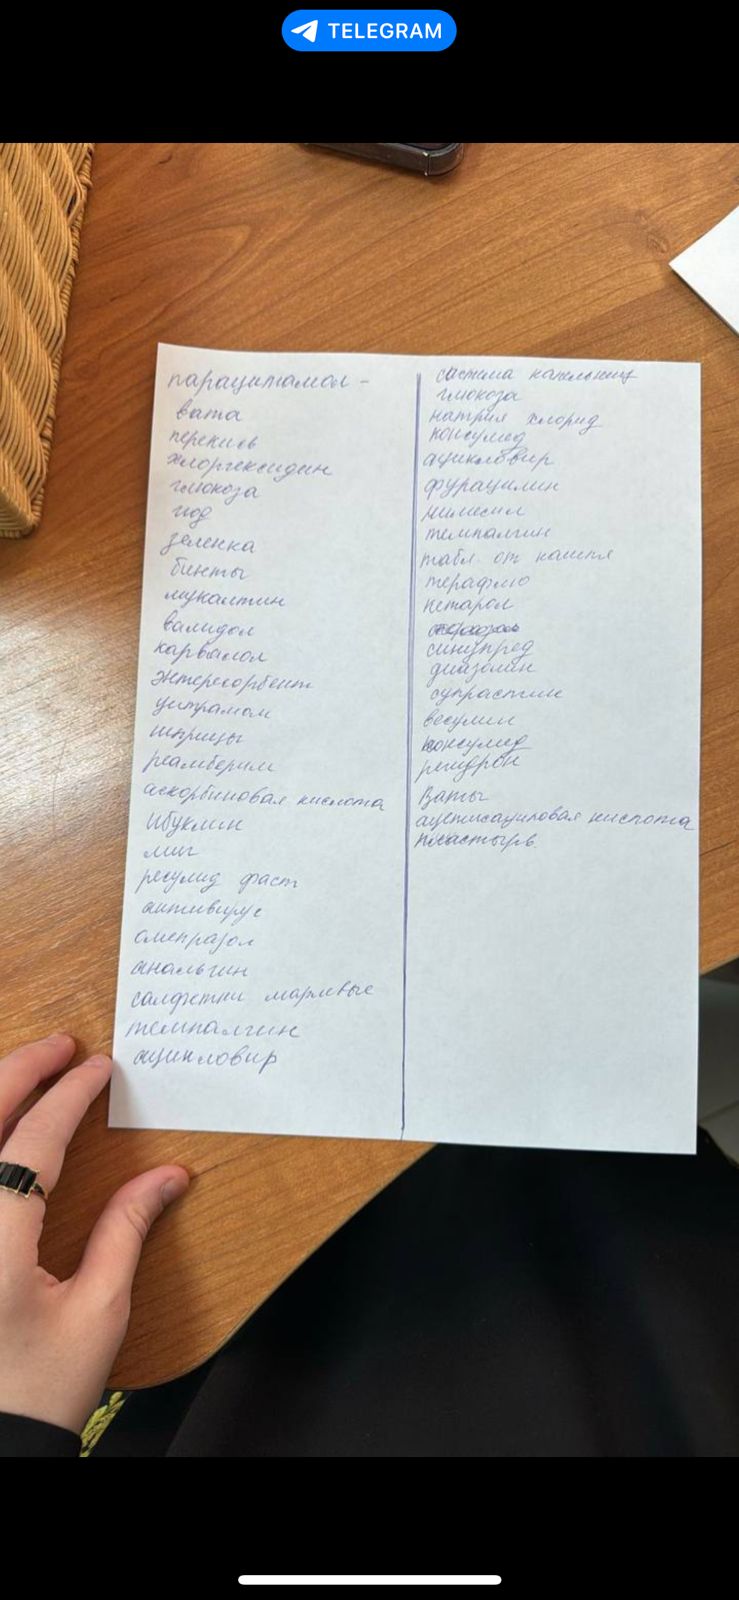 TELEGRAM
парацитамол -
вата
перекись
хлоргексидин
глюкоза
иод
зеленка
бинты
мукалтин
валидол
карвалол
энтересорбент
цитрамон
шприцы
реамберин
аскорбиновая кислота
Ибуклин
миг
ресулид фаст
антивирус
омепразол
анальгин
салфетки марливые
темпалгин
ацикловир
система капельниц
глюкоза
натрия хлорид
консумед
ацикловир
фурацилин
нимесил
темпалгин
табл. от кашля
терафлю
кетарол
синупред
диазолин
супрастин
консумед
регидрон
Ваты
кислота